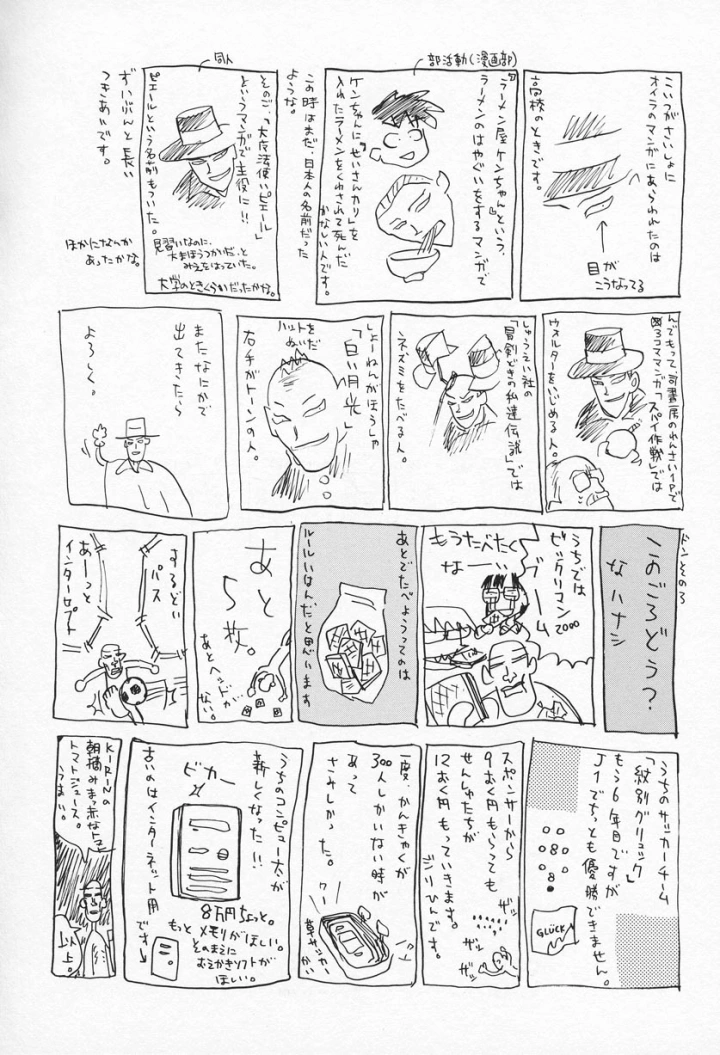 こいつがさいしょに
オイラのマンガにあらわれたのは
高校のときです。
目が
こうなってる
部活動(漫画部)
「ラーメン屋ケンちゃん」という、
ラーメンのはやぐいをするマンガで
ケンちゃんに「せいさんカリ」を
入れたラーメンをくわされて死んだ
かなしい人です。
この時はまだ、日本人の名前だった
ような。
同人
そのご、「大魔法使いピエール」
というマンガで主役に!!
ピエールという名前もついた。
見習いなのに、
大まほうつかいだっと
みえをはっていた。
大学のときくらいだったかな。
ずいぶんと長い
つきあいです。
ほかになんか
あったかな。
んでもって、
4コママンガ「スパイ作戦」では
ウォルターをいじめる人。
しゅうえい社の
「冒剣どきの私達伝説」では
ネズミをたべる人。
ハットを
ぬいだ
しょーねんがほうしゃ
「白い月光」
右手がトーンの人。
またなにかで
出てきたら
よろしく。
ドンとその3
このごろどう?
なハナシ
うちでは
ビックリマン
2000
ブーム
もうたべたく
なーい
あとでたべようってのは
ルールいはんだと思います
あと
5枚。
あとヘッドが
ない。
するどい
パス
あーっと
インターセプト
うちのサッカーチーム
「紋別グリュック」
もう6年目ですが
J1でちっとも優勝できません。
GLÜCK
スポンサーから
9おく円もらっても
せんしゅたちが
12おく円もっていきます。
ジリひんです。
ザッ
ザッ
ザッ
一度、かんきゃくが
300人しかいない時が
あって
さみしかった。
ワー
草サッカー
かい
うちのコンピュー太が
新しくなった!!
ピカー
8万円ちょっと。
もっとメモリがほしい。
そのまえに
おえかきソフトが
ほしい。
古いのはインターネット用
です
KIRINの
朝摘みまっ赤なトマト
トマトジュース。
うまい。
以上。